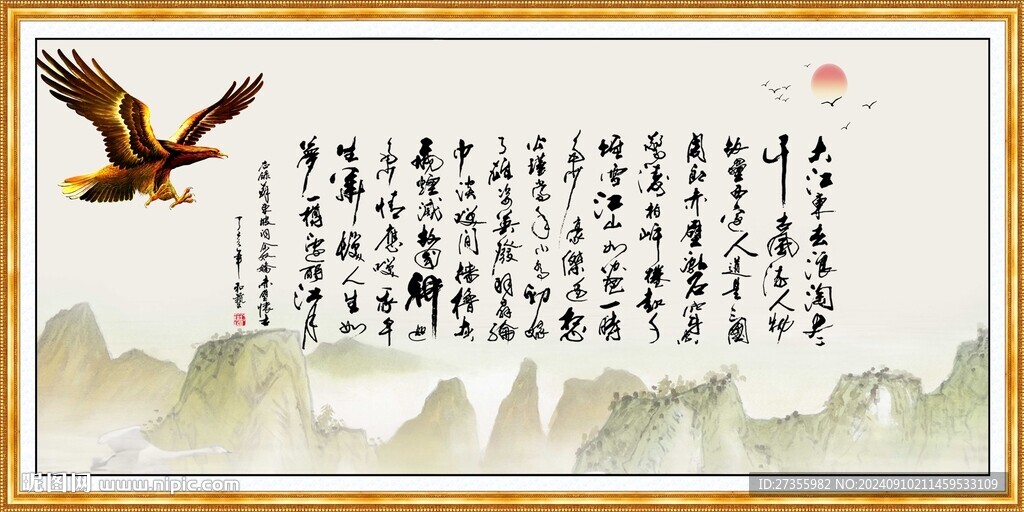 大江東去浪淘盡
千古風流人物
故壘西邊人道是三國
周郎赤壁亂石
驚濤拍岸捲起千
堆雪江山如畫一時
多少豪傑遙想
公瑾當年小喬初嫁
了雄姿英發羽扇綸
巾談笑間檣櫓灰
飛煙滅故國神
多情應笑我早
生華髮人生如
夢一樽還酹江月
蘇東坡詞念奴嬌赤壁懷古
昵图网 www.nipic.com
ID:27355982 NO:20240910211459533109